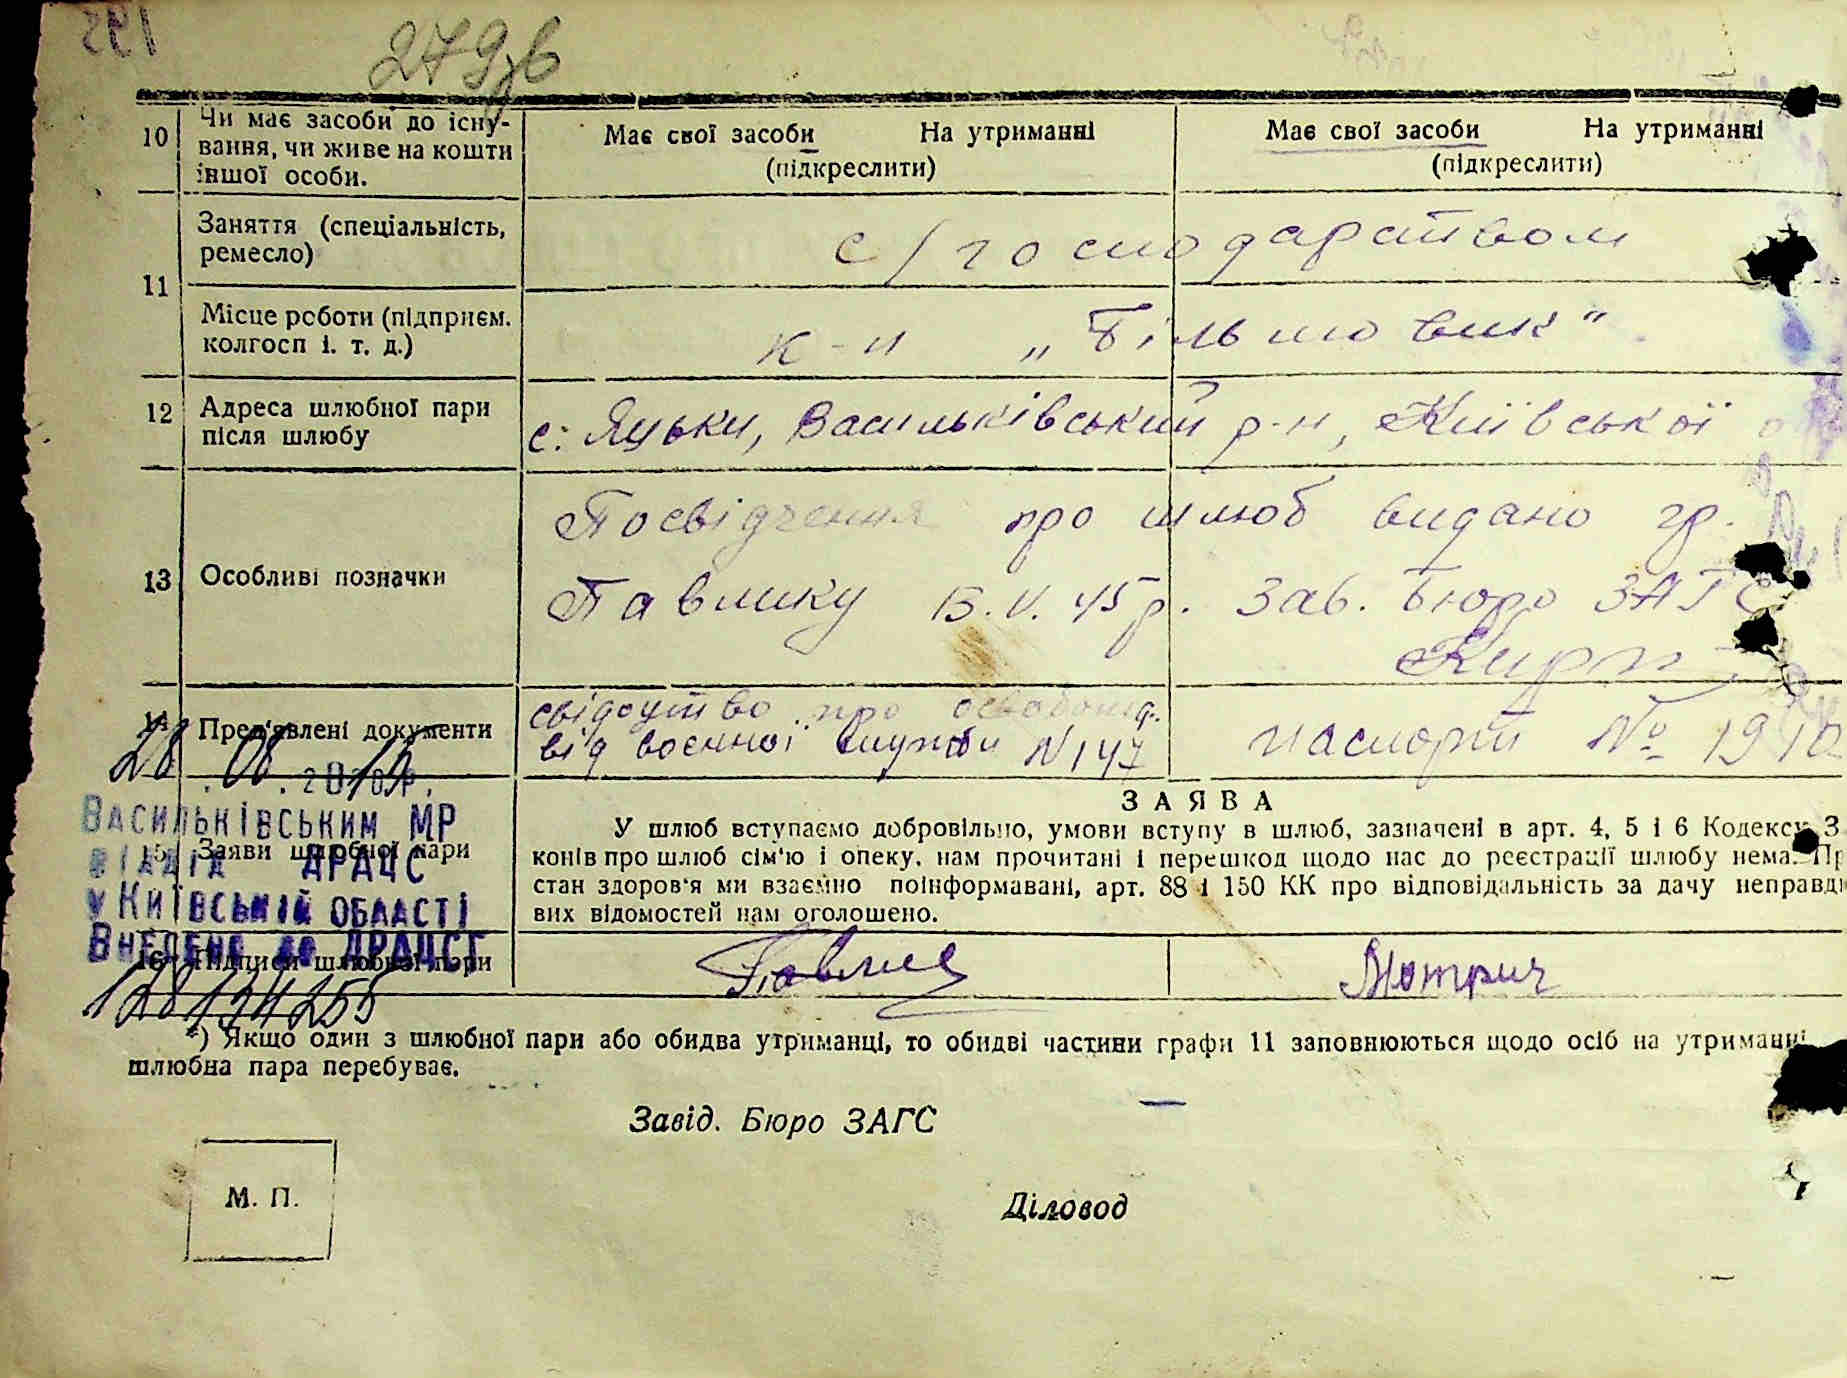 279зв
10 Чи має засоби до існу-
вання, чи живе на кошти
іншої особи.
Має свої засоби На утриманні
(підкреслити)
Має свої засоби На утриманні
(підкреслити)
11
Заняття (спеціальність,
ремесло)
с/господарством
Місце роботи (підприєм.
колгосп і. т. д.)
к-п „Більшовик"
12 Адреса шлюбної пари
після шлюбу
с. Яцьки, Васильківський р-н, Київської
13 Особливі позначки
Посвідчення про шлюб видано гр.
Павлику 15.V.45р. Зав. Бюро ЗАГС
14 Пред'явлені документи
свідоцтво про освобожд.
від воєнної служби N147
паспорт №
28 08
ВАСИЛЬКІВСЬКИМ МР
ВІДДІЛ ДРАЦС
У КИЇВСЬКІЙ ОБЛАСТІ
ВНЕСЕНО до ДРАЦСГ
128134255
15 Заяви шлюбної пари
ЗАЯВА
У шлюб вступаємо добровільно, умови вступу в шлюб, зазначені в арт. 4, 5 і 6 Кодексу З
конів про шлюб сім'ю і опеку, нам прочитані і перешкод щодо нас до реєстрації шлюбу нема. Пр
стан здоров'я ми взаємно поінформавані, арт. 88 і 150 КК про відповідальність за дачу неправди
вих відомостей нам оголошено.
16 Підписи шлюбної пари
Павлик
Мотрич
*) Якщо один з шлюбної пари або обидва утриманці, то обидві частини графи 11 заповнюються щодо осіб на утриманні
шлюбна пара перебуває.
Завід. Бюро ЗАГС
М. П.
Діловод